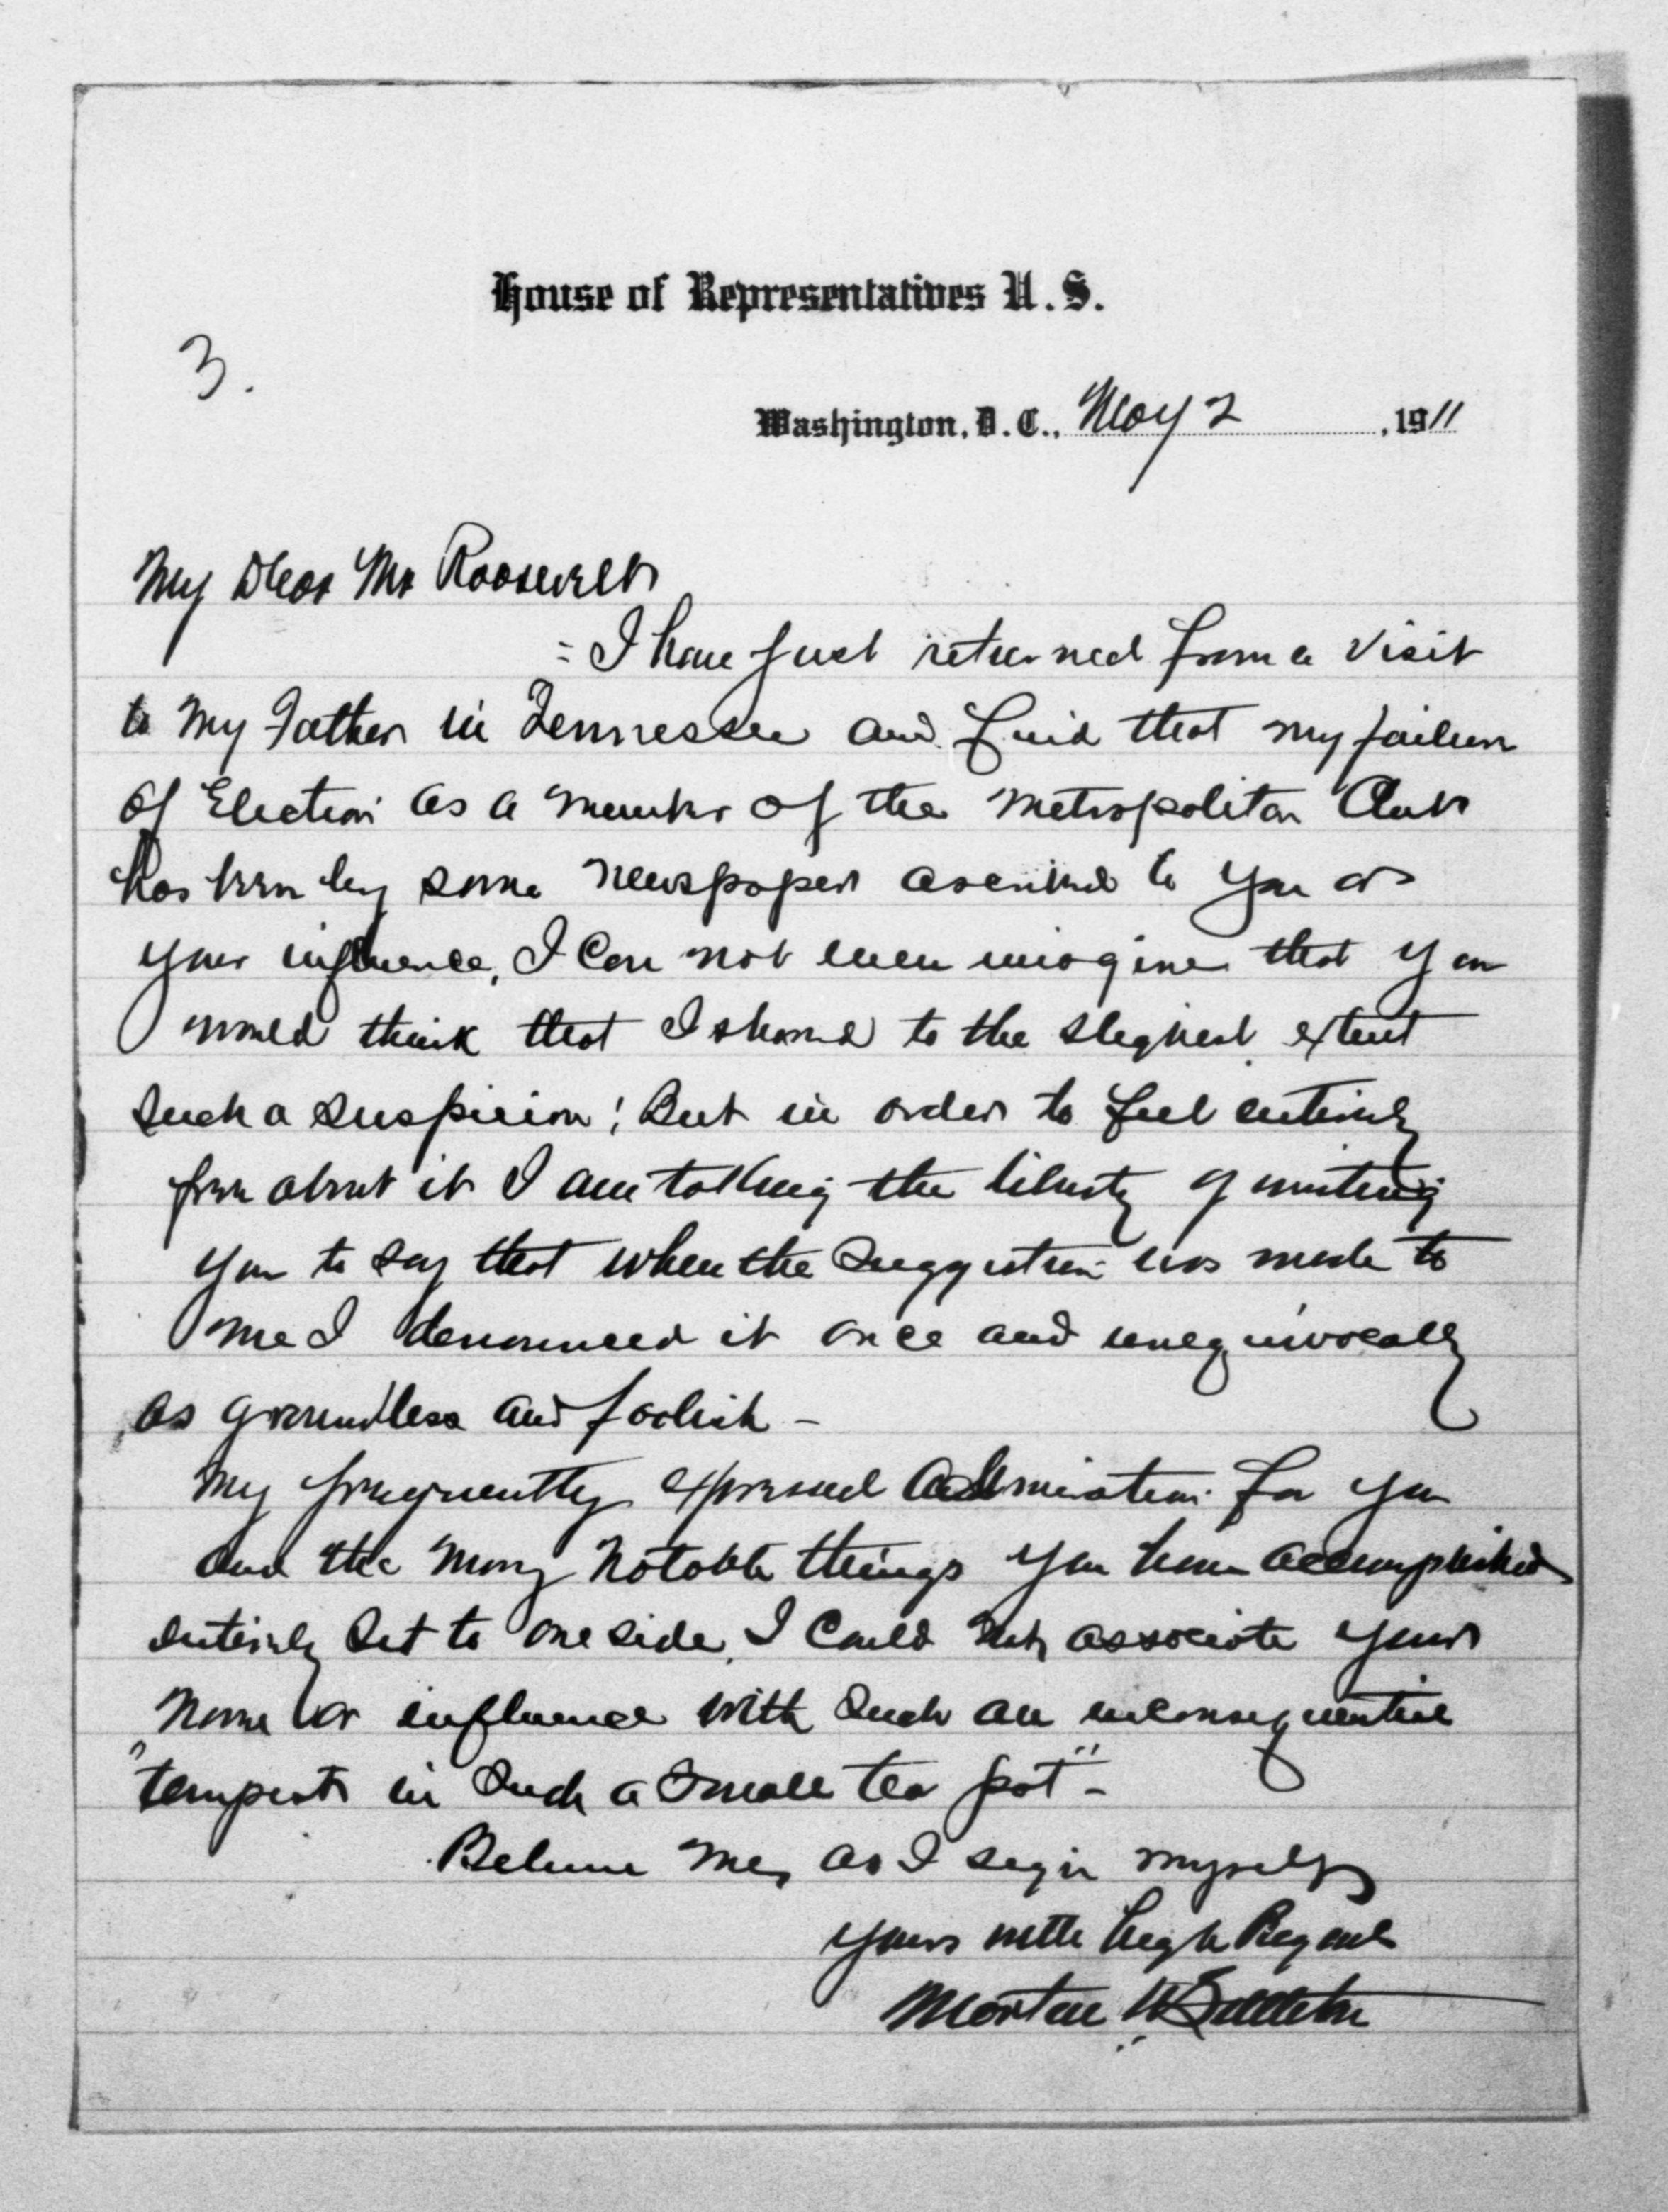 House of Representatives U. S.
3.
Washington, D. C., May 2, 1911
My Dear Mr Roosevelt
= I have just returned from a visit
to my Father in Tennessee and find that my failure
of Election as a member of the Metropolitan Club
has been by some newspapers ascribed to you or
your influence, I can not even imagine that you
would think that I shared to the slightest extent
such a suspicion; But in order to feel entirely
free about it I am taking the liberty of writing
you to say that when the suggestion was made to
me I denounced it once and unequivocally
as groundless and foolish -
My frequently expressed admiration for you
and the many notable things you have accomplished
entirely set to one side, I could not associate your
name or influence with such an inconsequential
"tempest in such a small tea pot" -
Believe me, as I sign myself
yours with high Regard